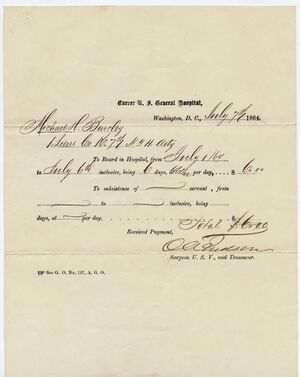 Carver U. S. General Hospital,
Washington, D. C., July 7th 1864.
Michael H. Barclay
1 Lieut Co K. 7th N Y H Arty
To Board in Hospital, from July 1st
to July 6th inclusive, being 6 days, @ per day, $ 6.00
To subsistence of servant, from
to inclusive, being
days, at per day. $
Total $6.00
Received Payment,
O. A. Judson
Surgeon U. S. V., and Treasurer.
See G. O. No. 197, A. G. O.